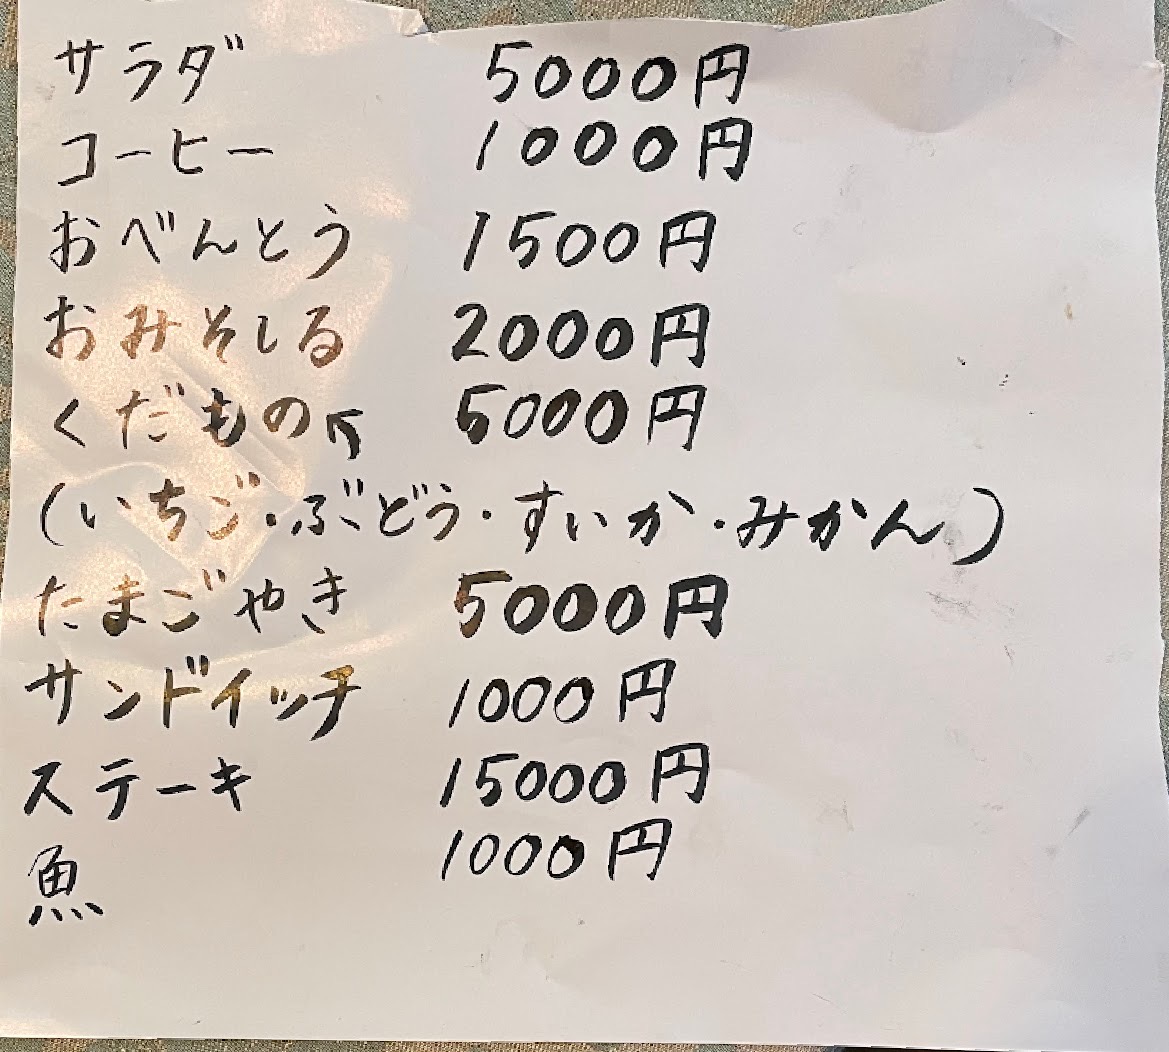 サラダ 5000円
コーヒー 1000円
おべんとう 1500円
おみそしる 2000円
くだもの↖ 5000円
(いちご・ぶどう・すいか・みかん)
たまごやき 5000円
サンドイッチ 1000円
ステーキ 15000円
魚 1000円